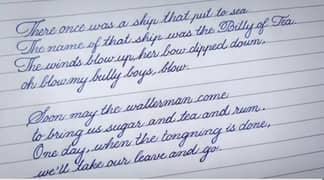 There once was a ship that put to sea
The name of that ship was the Billy of Tea.
The winds blow up, her bow dipped down,
oh blow my bully boys, blow.
Soon may the wellerman come
to bring us sugar and tea and rum.
One day, when the tongning is done,
we'll take our leave and go.